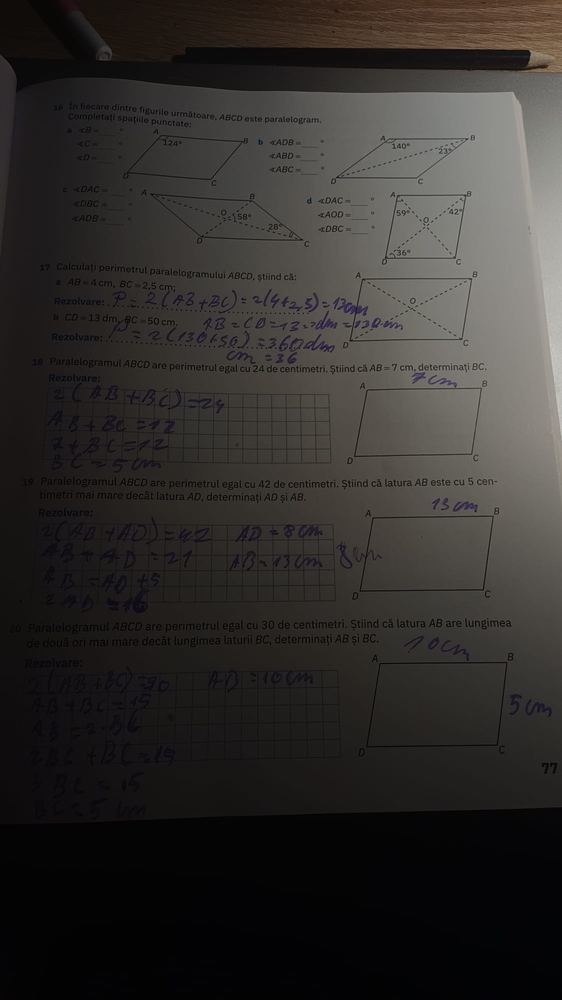 16 În fiecare dintre figurile următoare, ABCD este paralelogram.
Completați spațiile punctate:
a ∢B = ___ °
∢C = ___ °
∢D = ___ °
A
B
124°
D
C
b ∢ADB = ___ °
∢ABD = ___ °
∢ABC = ___ °
A
B
140°
23°
D
C
c ∢DAC = ___ °
∢DBC = ___ °
∢ADB = ___ °
A
B
O
58°
28°
D
C
d ∢DAC = ___ °
∢AOD = ___ °
∢DBC = ___ °
A
B
59°
42°
O
36°
D
C
17 Calculați perimetrul paralelogramului ABCD, știind că:
a AB = 4 cm, BC = 2,5 cm;
Rezolvare: P = 2(AB+BC) = 2(4+2,5) = 13cm
b CD = 13 dm, BC = 50 cm.
AB = CD = 13 dm = 130 cm
Rezolvare: P = 2(130+50) = 360
cm = 36
A
B
O
D
C
18 Paralelogramul ABCD are perimetrul egal cu 24 de centimetri. Știind că AB = 7 cm, determinați BC.
Rezolvare:
2(AB+BC) = 24
AB+BC = 12
7+BC = 12
BC = 5 cm
7 cm
A
B
D
C
19 Paralelogramul ABCD are perimetrul egal cu 42 de centimetri. Știind că latura AB este cu 5 cen-
timetri mai mare decât latura AD, determinați AD și AB.
Rezolvare:
2(AB+AD) = 42 AD = 8 cm
AB+AD = 21 AB = 13 cm
AB = AD+5
2AD = 16
13 cm
A
B
8 cm
D
C
20 Paralelogramul ABCD are perimetrul egal cu 30 de centimetri. Știind că latura AB are lungimea
de două ori mai mare decât lungimea laturii BC, determinați AB și BC.
Rezolvare:
2(AB+BC) = 30 AB = 10 cm
AB+BC = 15
AB = 2·BC
2BC+BC = 15
3BC = 15
BC = 5 cm
10cm
A
B
5 cm
D
C
77